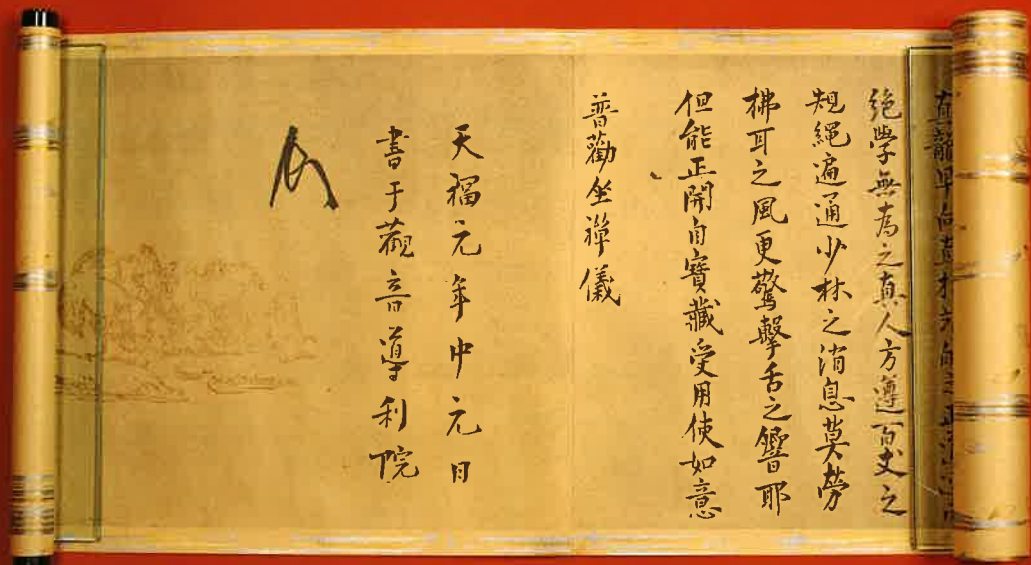 龍早向
絶學無為之真人方遵百丈之
規繩遍通少林之消息莫勞
拂耳之風更驚擊舌之響耶
但能正開自寶藏受用使如意
普勸坐禪儀
天福元年中元日
書于觀音導利院